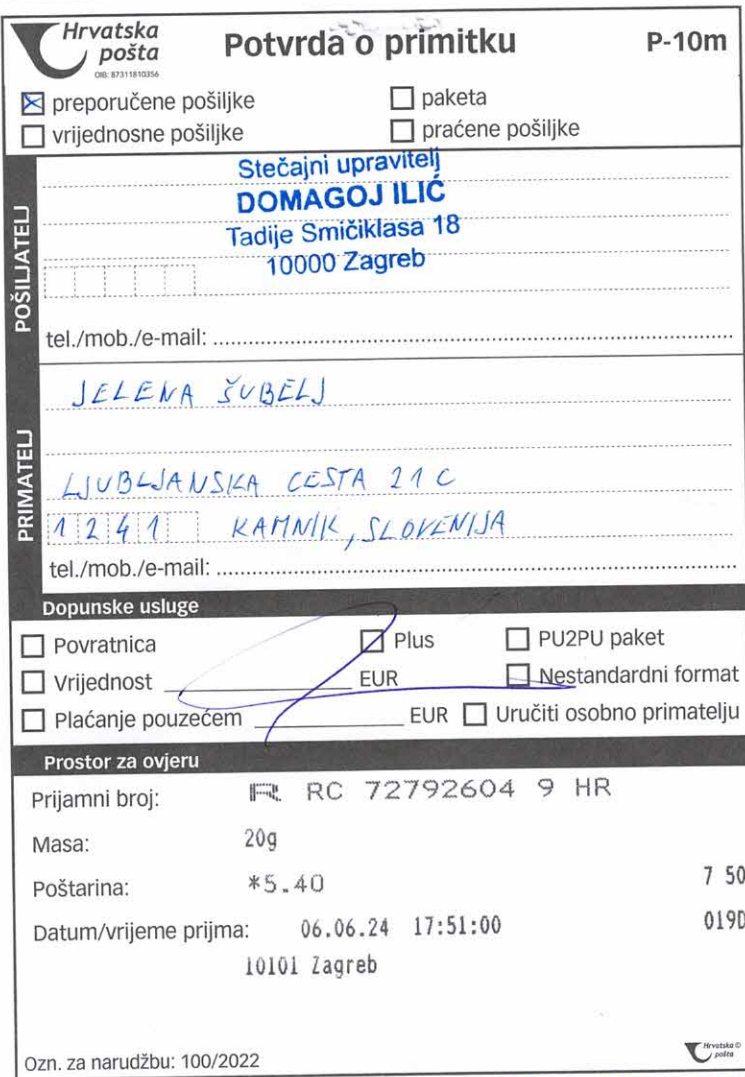 Hrvatska
pošta
OIB: 87311810356
Potvrda o primitku
P-10m
preporučene pošiljke
paketa
vrijednosne pošiljke
praćene pošiljke
POŠILJATELJ
Stečajni upravitelj
DOMAGOJ ILIĆ
Tadije Smičiklasa 18
10000 Zagreb
tel./mob./e-mail:
PRIMATELJ
JELENA ŠUBELJ
LJUBLJANSKA CESTA 21 C
1241 KAMNIK, SLOVENIJA
tel./mob./e-mail:
Dopunske usluge
Povratnica
Plus
PU2PU paket
Vrijednost EUR
Nestandardni format
Plaćanje pouzećem EUR
Uručiti osobno primatelju
Prostor za ovjeru
Prijamni broj: R RC 72792604 9 HR
Masa: 20g
Poštarina: *5.40 7 50
Datum/vrijeme prijma: 06.06.24 17:51:00 019D
10101 Zagreb
Ozn. za narudžbu: 100/2022
Hrvatska
pošta